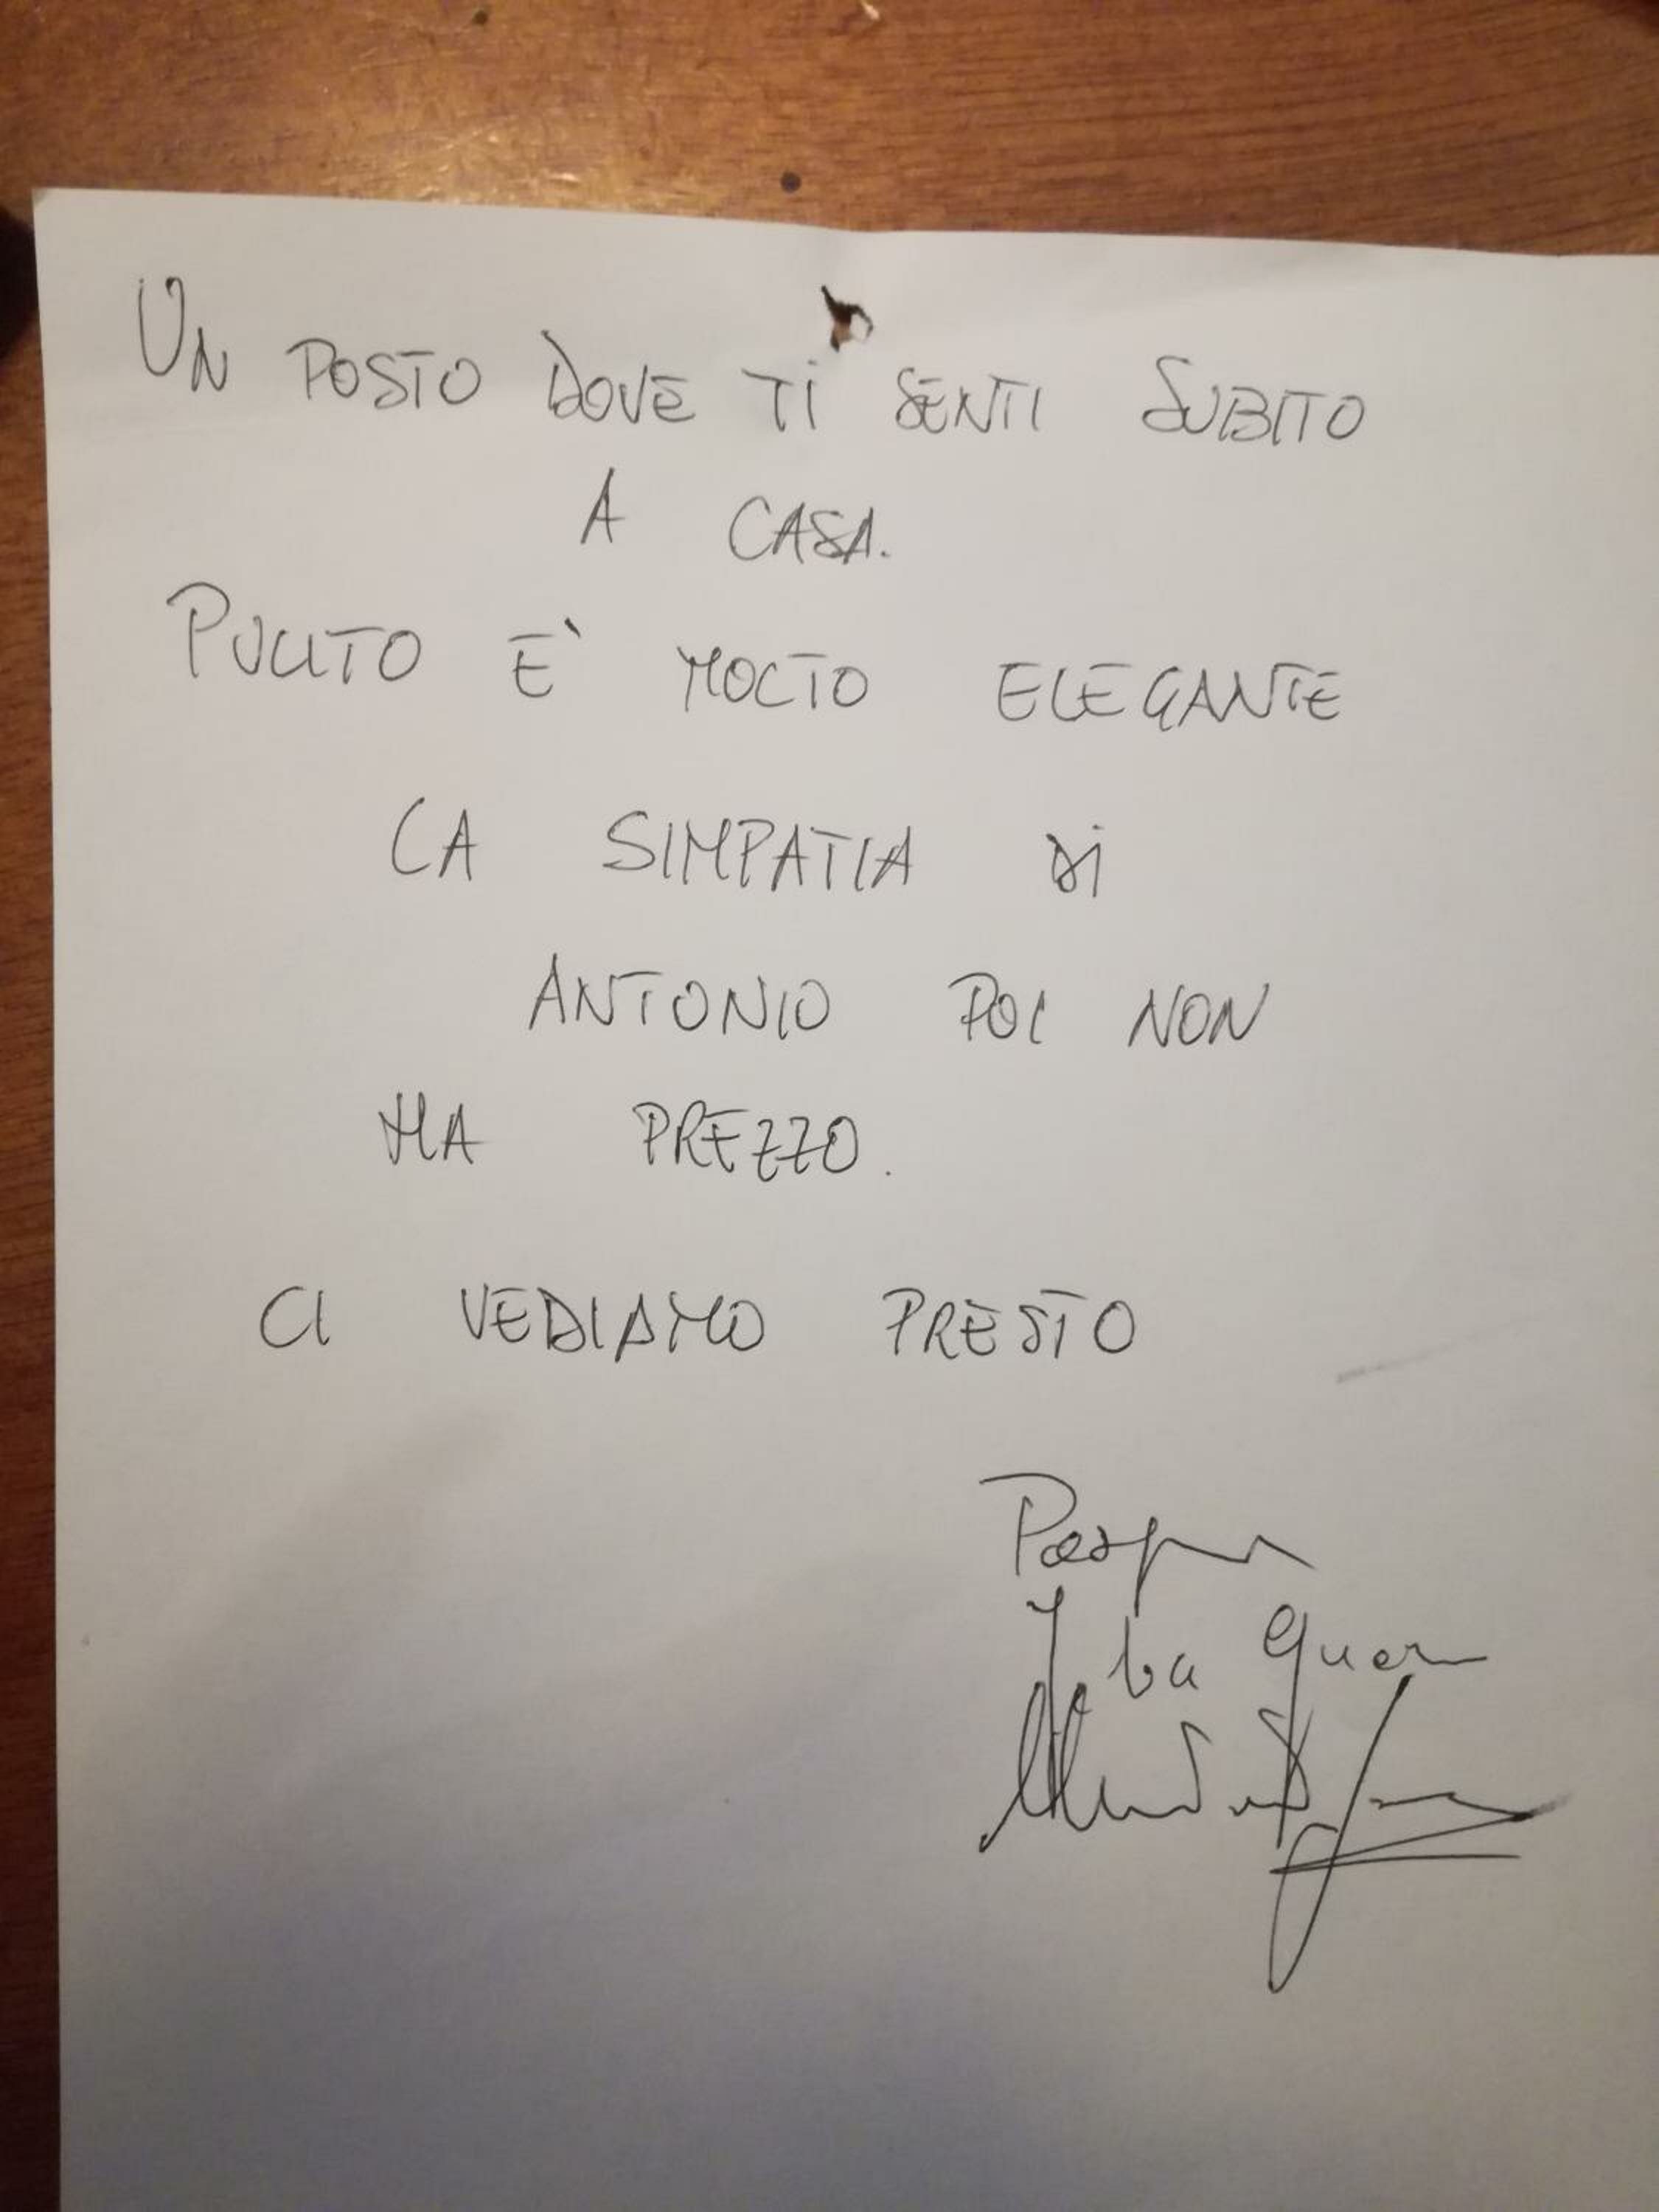 UN POSTO DOVE TI SENTI SUBITO
A CASA.
PULITO E' MOLTO ELEGANTE
LA SIMPATIA DI
ANTONIO POI NON
HA PREZZO.
CI VEDIAMO PRESTO